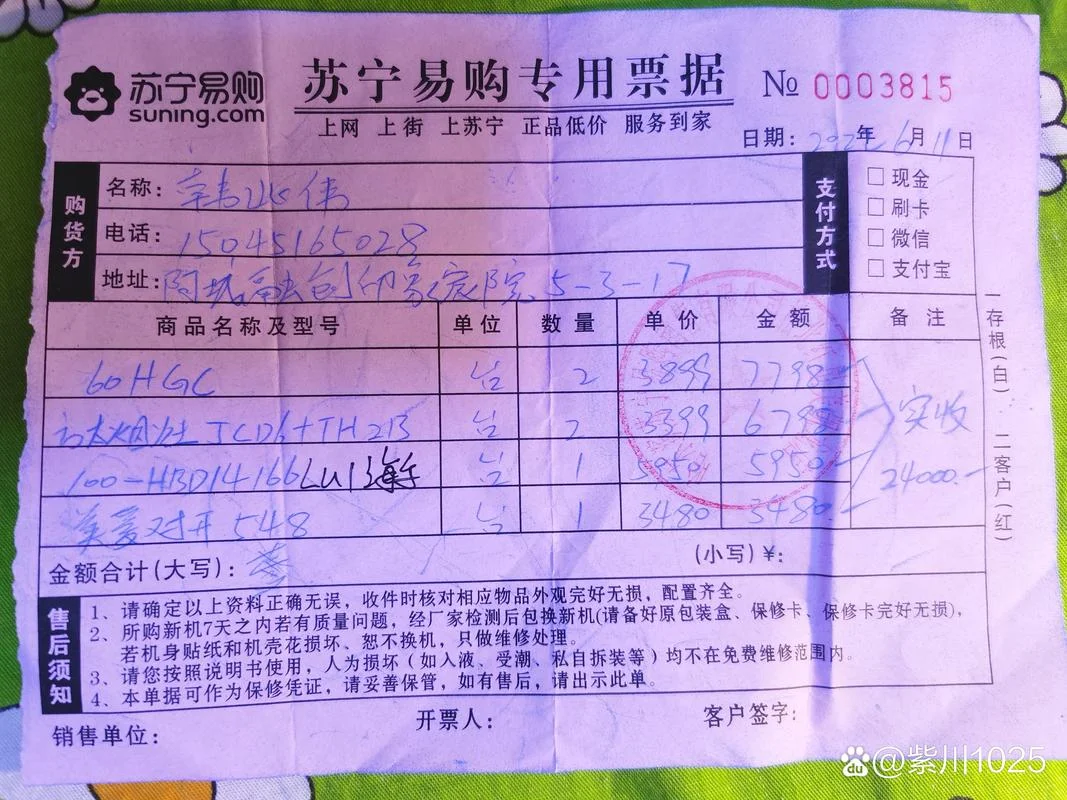 苏宁易购
suning.com
苏宁易购专用票据
№ 0003815
上网 上街 上苏宁 正品低价 服务到家
日期: 年 6月 11日
购货方
名称: 韩 伟
电话: 15045165028
地址: 阿城融创印象庭院 5-3-17
支付方式
□ 现金
□ 刷卡
□ 微信
□ 支付宝
商品名称及型号 单位 数量 单价 金额 备注
60HGC 台 2 3899 7798.-
JCD6+TH21B 台 2 3399 6798.-
100-HBD14166LU1 海尔 台 1 5950 5950.-
对开 548 台 1 3480 3480.-
实收
24000.-
金额合计(大写):
(小写)¥:
售后须知
1、请确定以上资料正确无误，收件时核对相应物品外观完好无损，配置齐全。
2、所购新机7天之内若有质量问题，经厂家检测后包换新机(请备好原包装盒、保修卡、保修卡完好无损)，
若机身贴纸和机壳花损坏、恕不换机，只做维修处理。
3、请您按照说明书使用，人为损坏（如入液、受潮、私自拆装等）均不在免费维修范围内。
4、本单据可作为保修凭证，请妥善保管，如有售后，请出示此单。
销售单位:
开票人:
客户签字:
一存根(白) 二客户(红)
Bai du @紫川1025